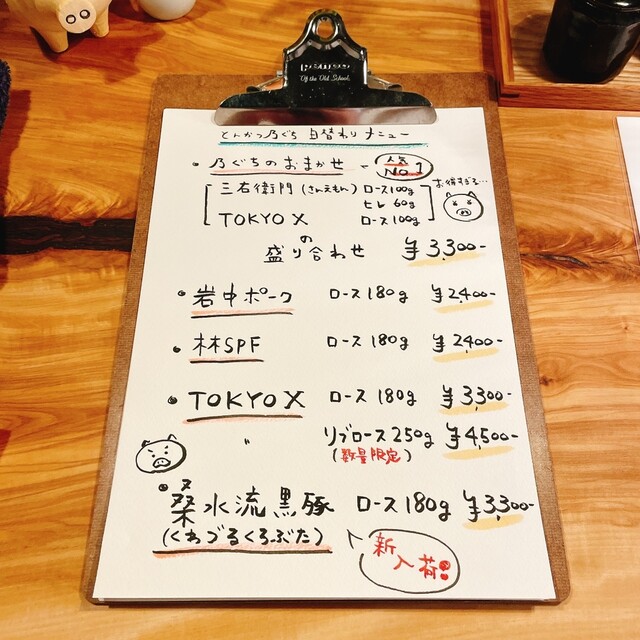 Of the Old School.
とんかつ乃ぐち 日替わりメニュー
・乃ぐちのおまかせ 人気No.1
三右衛門(さんえもん) ロース100g
ヒレ 60g
TOKYO X ロース100g
お得すぎる…
の盛り合わせ ¥3,300-
・岩中ポーク ロース180g ¥2,400-
・林SPF ロース180g ¥2,400-
・TOKYO X ロース 180g ¥3,300-
〃 リブロース250g ¥4,500-
(数量限定)
・桑水流黒豚 ロース180g ¥3,300-
(くわづるくろぶた)
新入荷!!